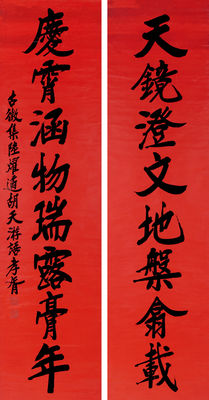 天鏡澄文地槃翕載
慶霄涵物瑞露膏年
古徵集陸耀遹胡天游語孝胥